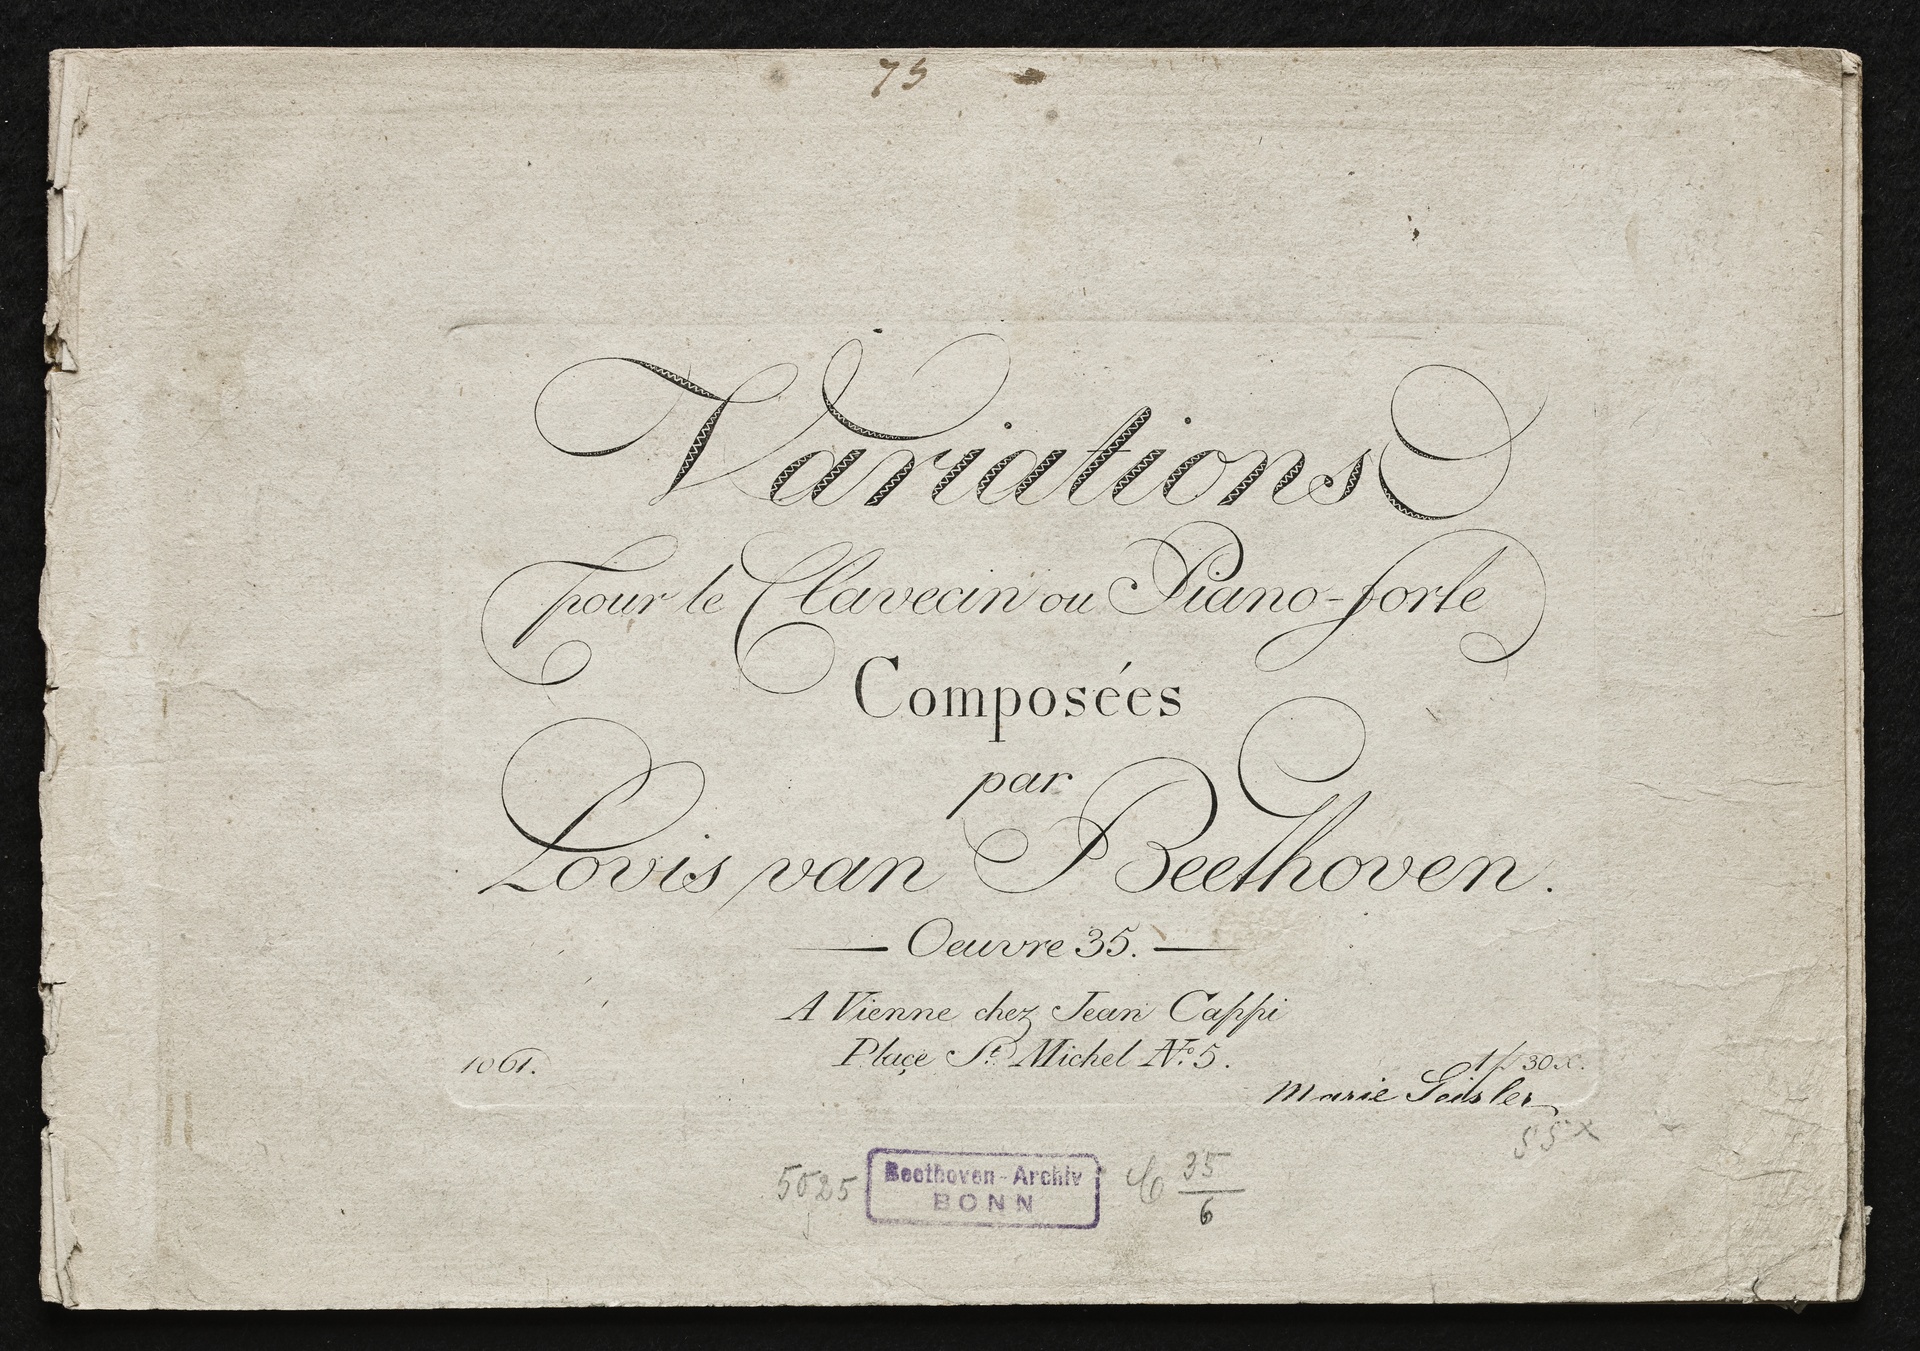 75
Variations
pour le Clavecin ou Piano-forte
Composées
par
Lovis van Beethoven.
Oeuvre 35.
A Vienne chez Jean Cappi
Plaçe St. Michel No. 5.
1061.
1f 30x.
Marie
55x
5025
Beethoven-Archiv
BONN
C 35/6